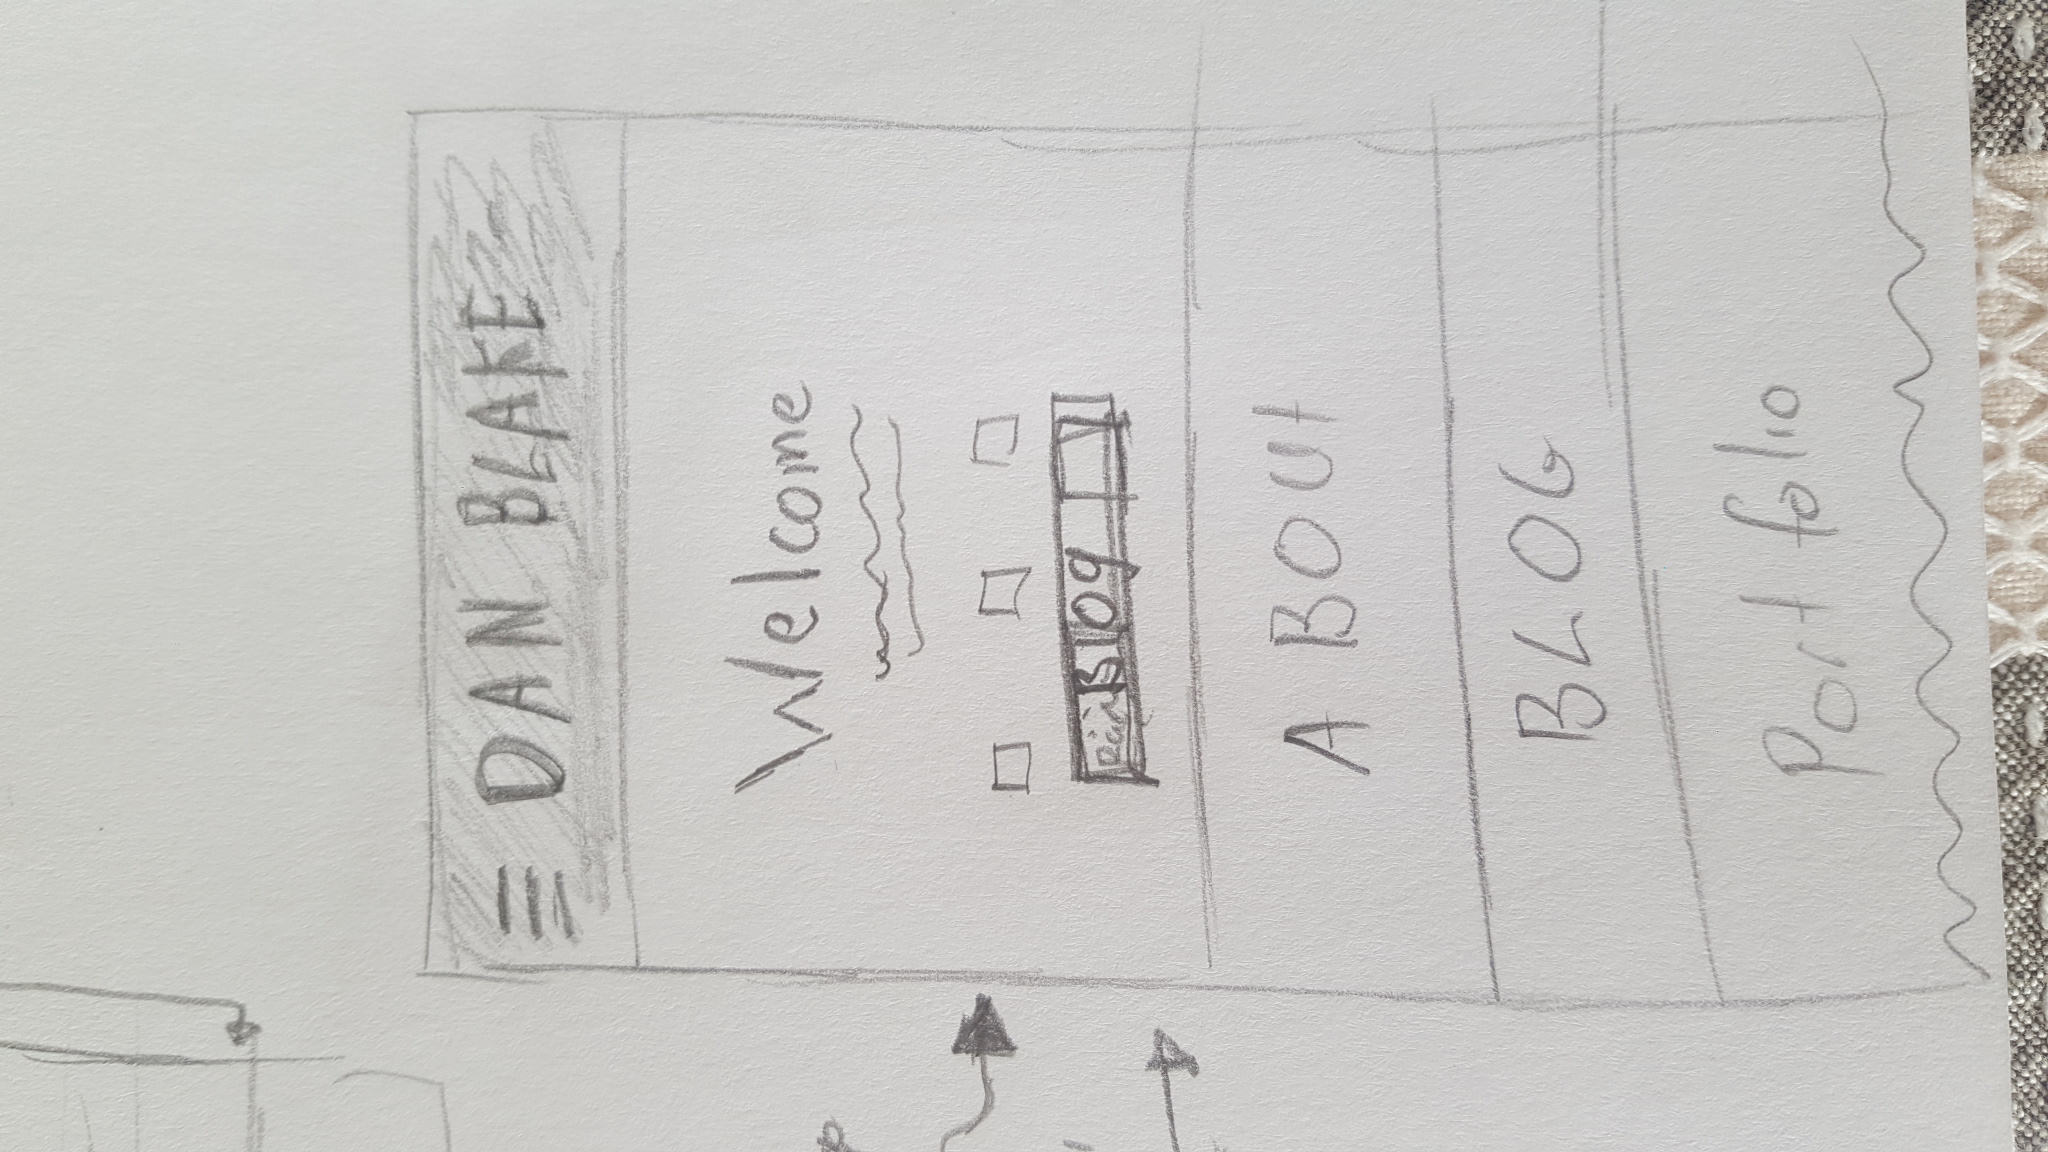 DAN BLAKE
Welcome
Blog
ABOUt
BLOG
Portfolio